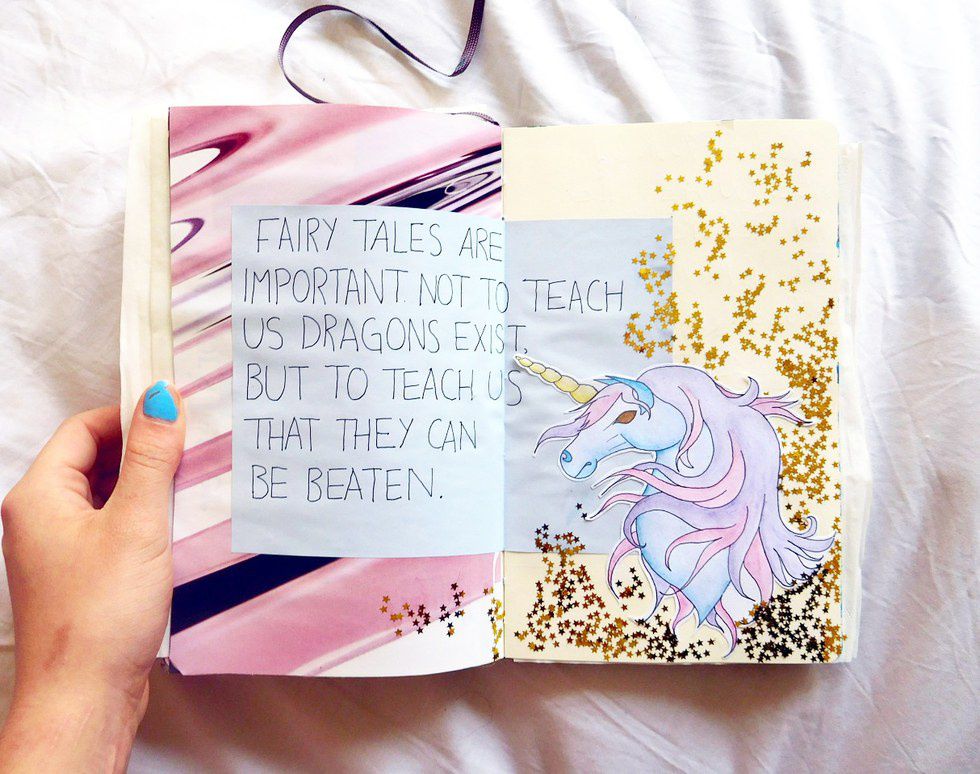 FAIRY TALES ARE
IMPORTANT. NOT TO TEACH
US DRAGONS EXIST,
BUT TO TEACH US
THAT THEY CAN
BE BEATEN.